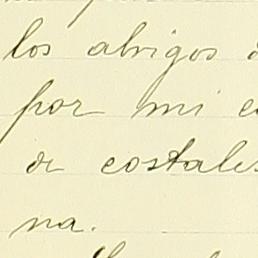 los abrigos
por mi
de costales
na.